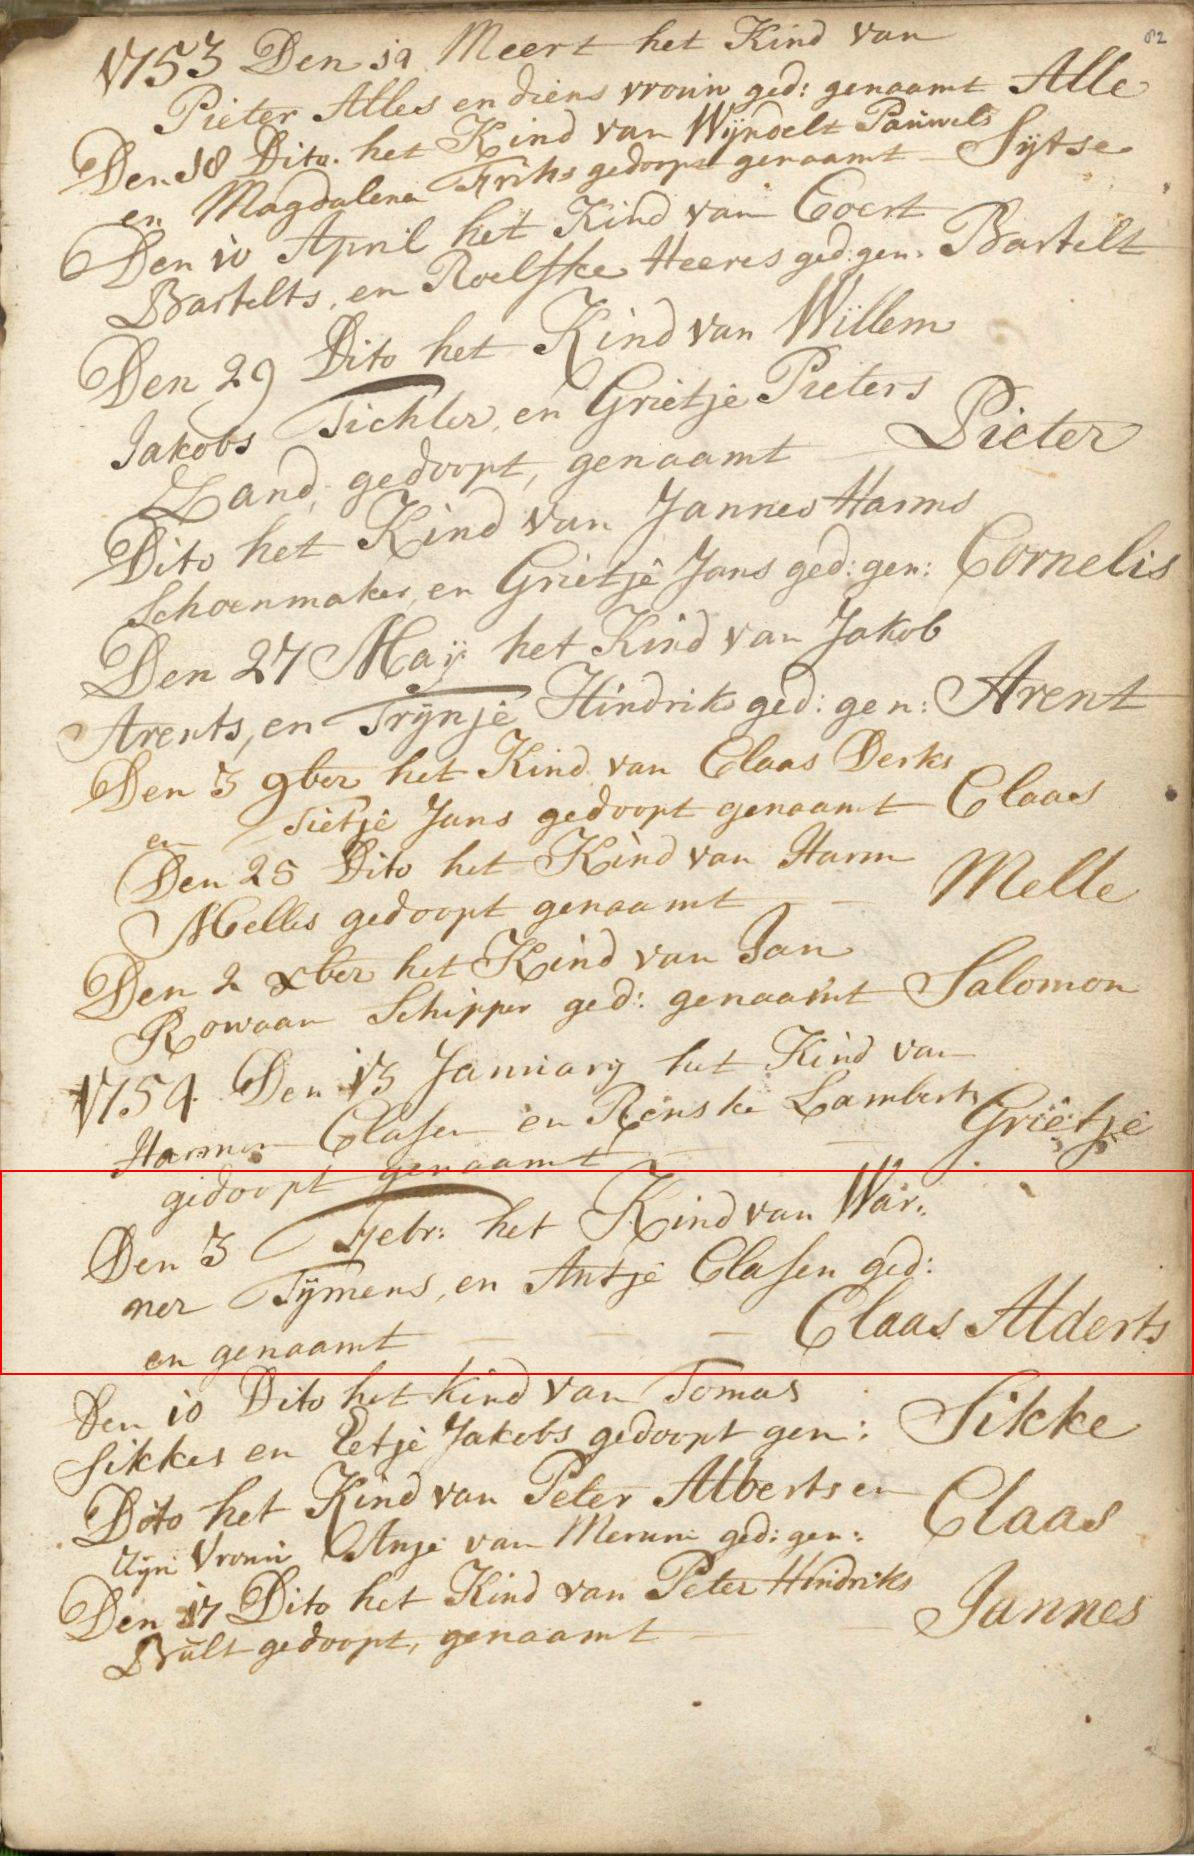 82
1753 Den 19 Meert het Kind van
Pieter Alles en diens vrouw ged: genaamt Alle
Den 18 Dito. het Kind van Wijndelt Pauwels
en Magdalena Friks gedoopt genaamt Sijtse
Den 10 April het Kind van Coert
Bartelts, en Roelfke Heeres ged: gen: Bartelt
Den 29 Dito het Kind van Willem
Jakobs Tichler, en Grietje Pieters
Zand, gedoopt, genaamt Pieter
Dito het Kind van Jannes Harms
Schoenmaker, en Grietje Jans ged: gen: Cornelis
Den 27 Maij het Kind van Jakob
Arents, en Trijnje Hindriks ged: gen: Arent
Den 3 9ber het Kind van Claas Derks
en Tietje Jans gedoopt genaamt Claas
Den 25 Dito het Kind van Harm
Melles gedoopt genaamt — — Melle
Den 2 xber het Kind van Jan
Rowaan Schipper ged: genaamt Salomon
1754. Den 13 January het Kind van
Harmen Clasen en Renske Lamberts
gedoopt genaamt — — Grietje
Den 3 Febr: het Kind van War:
ner Tijmens, en Antje Clasen ged:
en genaamt — — — Claas Alderts
Den 10 Dito het Kind van Tomas
Sikkes en Eetje Jakobs gedoopt gen: Sikke
Dito het Kind van Peter Alberts en
zijn Vrouw Anje van Merum ged: gen: Claas
Den 17 Dito het Kind van Peter Hindriks
Bult gedoopt, genaamt — — Jannes